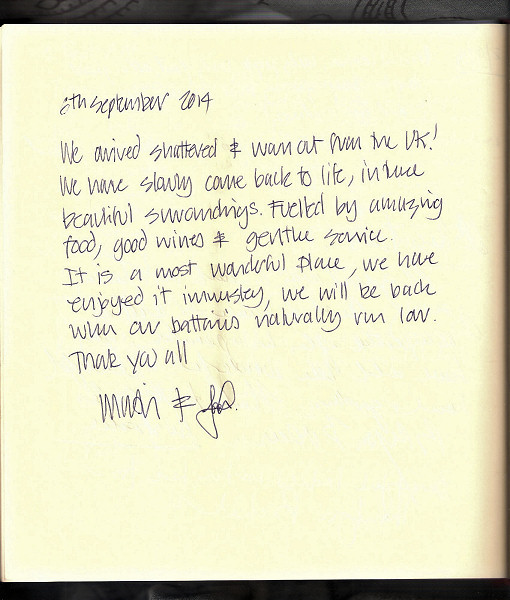 6th September 2014
We arrived shattered & worn out from the UK!
We have slowly come back to life, in these
beautiful surroundings. Fuelled by amazing
food, good wines & gentle service.
It is a most wonderful place, we have
enjoyed it immensley, we will be back
when our batteries naturally run low.
Thank you all
&